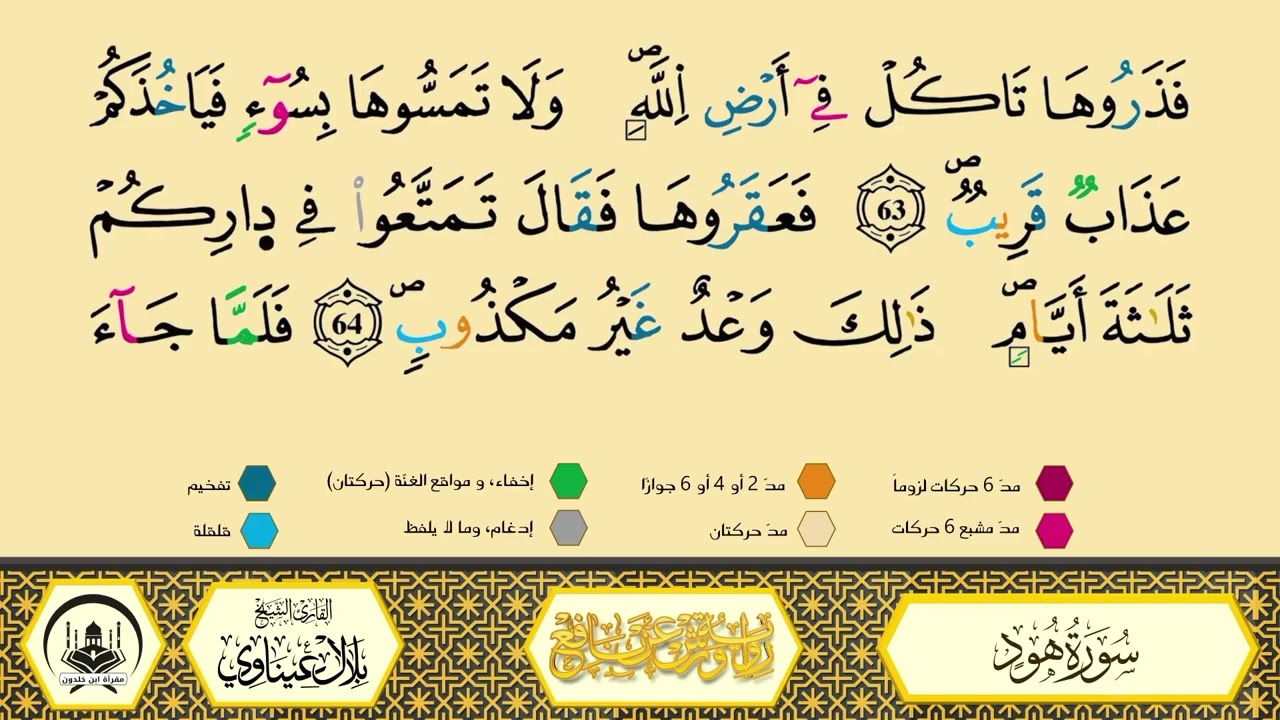 فَذَرُوهَا تَاكُلْ فِےٓ أَرْضِ اِ۬للَّهِۖ وَلَا تَمَسُّوهَا بِسُوٓءٖ فَيَاخُذَكُمْ
عَذَابٞ قَرِيبٞۖ 63 فَعَقَرُوهَا فَقَالَ تَمَتَّعُواْ فِے دِارِكُمْ
ثَلَٰثَةَ أَيَّامٖۖ ذَٰلِكَ وَعْدٌ غَيْرُ مَكْذُوبٖۖ 64 فَلَمَّا جَآءَ
مدّ 6 حركات لزوماً
مدّ 2 أو 4 أو 6 جوازًا
إخفاء، و مواقع الغنّة (حركتان)
تفخيم
مدّ مشبع 6 حركات
مدّ حركتان
إدغام، وما لا يلفظ
قلقلة
سُورَةُ هُودٍ
رواية ورش عن نافع
القارئ الشيخ
بلال عيناوي
مقرأة ابن خلدون